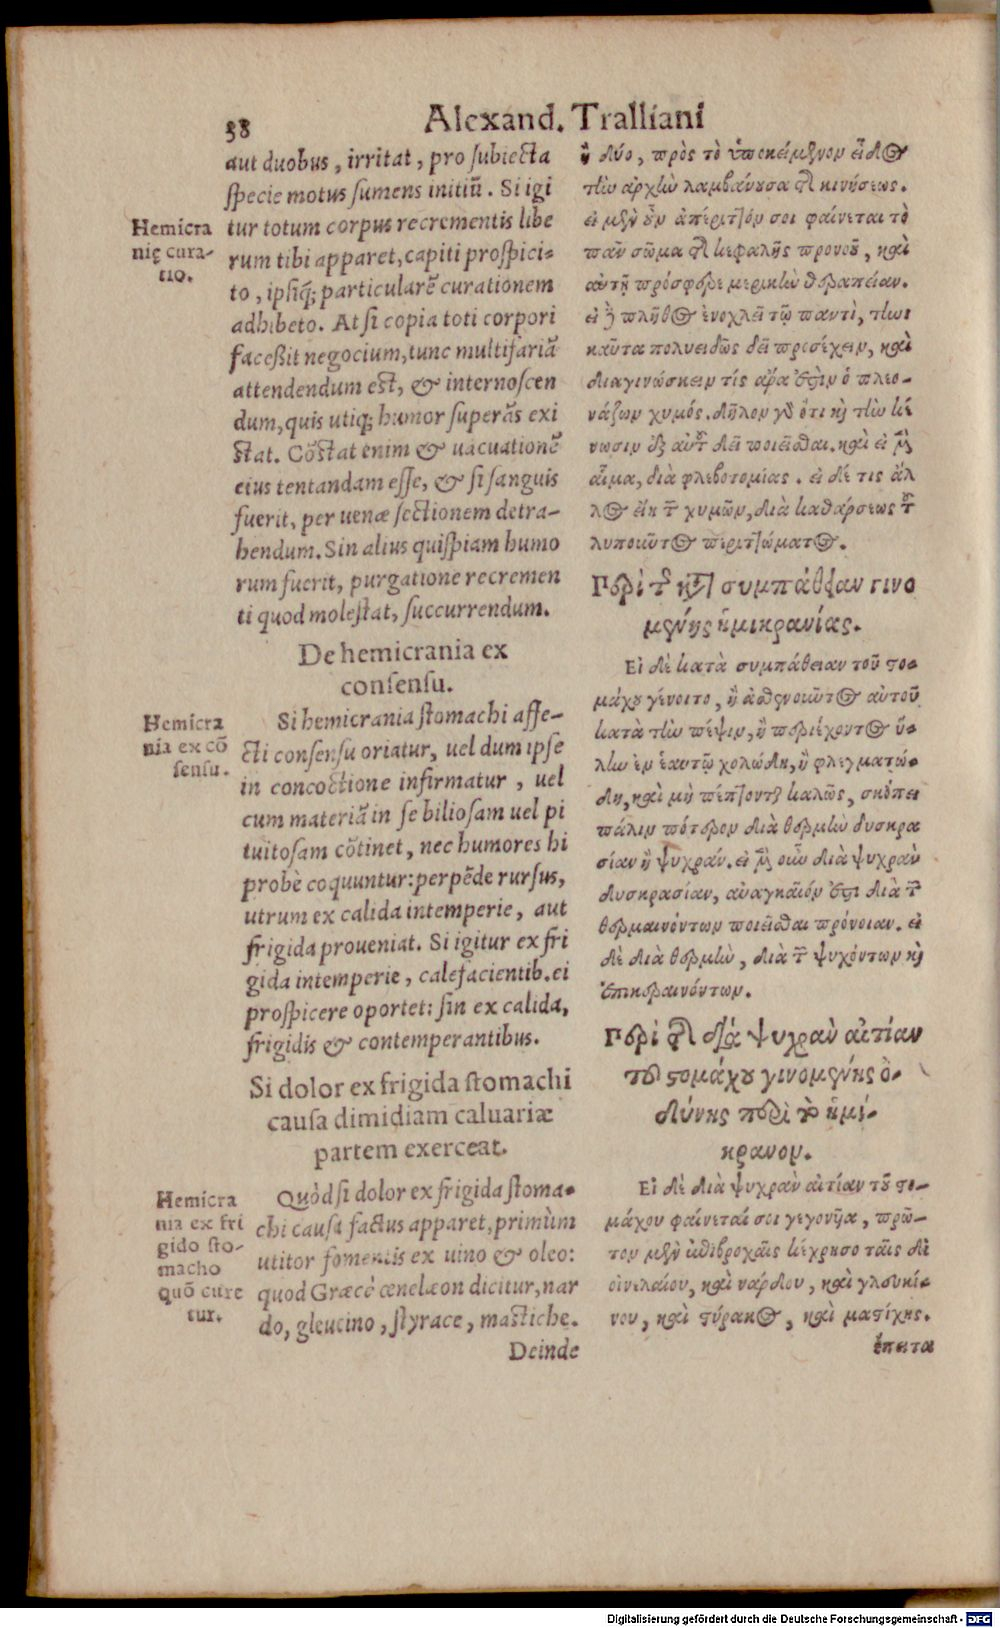 58
Alexand. Tralliani
aut duobus, irritat, pro subiecta
specie motus sumens initiū. Si igi
tur totum corpus recrementis libe
rum tibi apparet, capiti prospici-
to, ipsiq́; particularē curationem
adhibeto. At si copia toti corpori
facessit negocium, tunc multifariā
attendendum est, & internoscen
dum, quis utiq; humor superās exi
stat. Cōstat enim & uacuationē
eius tentandam esse, & si sanguis
fuerit, per uenæ sectionem detra-
hendum. Sin alius quispiam humo
rum fuerit, purgatione recremen
ti quod molestat, succurrendum.
De hemicrania ex
consensu.
Si hemicrania stomachi affe-
cti consensu oriatur, uel dum ipse
in concoctione infirmatur, uel
cum materiā in se biliosam uel pi
tuitosam cōtinet, nec humores hi
probè coquuntur: perpēde rursus,
utrum ex calida intemperie, aut
frigida proueniat. Si igitur ex fri
gida intemperie, calefacientib. ei
prospicere oportet: sin ex calida,
frigidis & contemperantibus.
Si dolor ex frigida stomachi
causa dimidiam caluariæ
partem exerceat.
Quòd si dolor ex frigida stoma-
chi causa factus apparet, primùm
utitor fomentis ex uino & oleo:
quod Græcè œnelæon dicitur, nar
do, gleucino, styrace, mastiche.
Deinde
Hemicra
nię cura-
tio.
Hemicra
nia ex cō
sensu.
Hemicra
nia ex fri
gido sto-
macho
quō cure
tur.
ἢ δύο, πρὸς τὸ ὑποκείμενον εἶδος
τὴν ἀρχὴν λαμβάνουσα τῆς κινήσεως.
εἰ μὲν οὖν ἀπέριττόν σοι φαίνεται τὸ
πᾶν σῶμα τῆς κεφαλῆς προνοοῦ, καὶ
αὐτῇ πρόσφερε μερικὴν θεραπείαν.
εἰ δὲ πλῆθος ἐνοχλεῖ τῷ παντὶ, τηνι
καῦτα πολυειδῶς δεῖ προσέχειν, καὶ
διαγινώσκειν τίς ἄρα ἐστὶν ὁ πλεο-
νάζων χυμός. δῆλον γὰρ ὅτι καὶ τὴν κέ
νωσιν ἐξ αὐτοῦ δεῖ ποιεῖσθαι. καὶ εἰ μὲν
αἷμα, διὰ φλεβοτομίας. εἰ δέ τις ἄλ
λος εἴη τῶν χυμῶν, διὰ καθάρσεως τοῦ
λυποιοῦντος περιττώματος.
Περὶ τῆς κατὰ συμπάθειαν γινο
μένης ἡμικρανίας.
Εἰ δὲ κατὰ συμπάθειαν τοῦ στο-
μάχου γένοιτο, ἢ ἀσθενοιοῦντος αὐτοῦ
κατὰ τὴν πέψιν, ἢ περιέχοντος ὕ-
λην ἐν ἑαυτῷ χολώδη, ἢ φλεγματώ-
δη, καὶ μὴ πέπτοντος καλῶς, σκόπει
πάλιν πότερον διὰ θερμὴν δυσκρα
σίαν ἢ ψυχράν. εἰ μὲν οὖν διὰ ψυχρὰν
δυσκρασίαν, ἀναγκαῖόν ἐστι διὰ τῶν
θερμαινόντων ποιεῖσθαι πρόνοιαν. εἰ
δὲ διὰ θερμὴν, διὰ τῶν ψυχόντων καὶ
ἐπικεραινόντων.
Περὶ τῆς διὰ ψυχρὰν αἰτίαν
τοῦ στομάχου γινομένης ὀ-
δύνης περὶ τὸ ἡμί-
κρανον.
Εἰ δὲ διὰ ψυχρὰν αἰτίαν τοῦ στο-
μάχου φαίνεταί σοι γεγονῆα, πρῶ-
τον μὲν ἐπιβροχαῖς κέχρησο ταῖς δἰ
οἰνελαίου, καὶ νάρδου, καὶ γλευκί-
νου, καὶ στύρακος, καὶ μαστίχης.
ἔπειτα
Digitalisierung gefördert durch die Deutsche Forschungsgemeinschaft - DFG